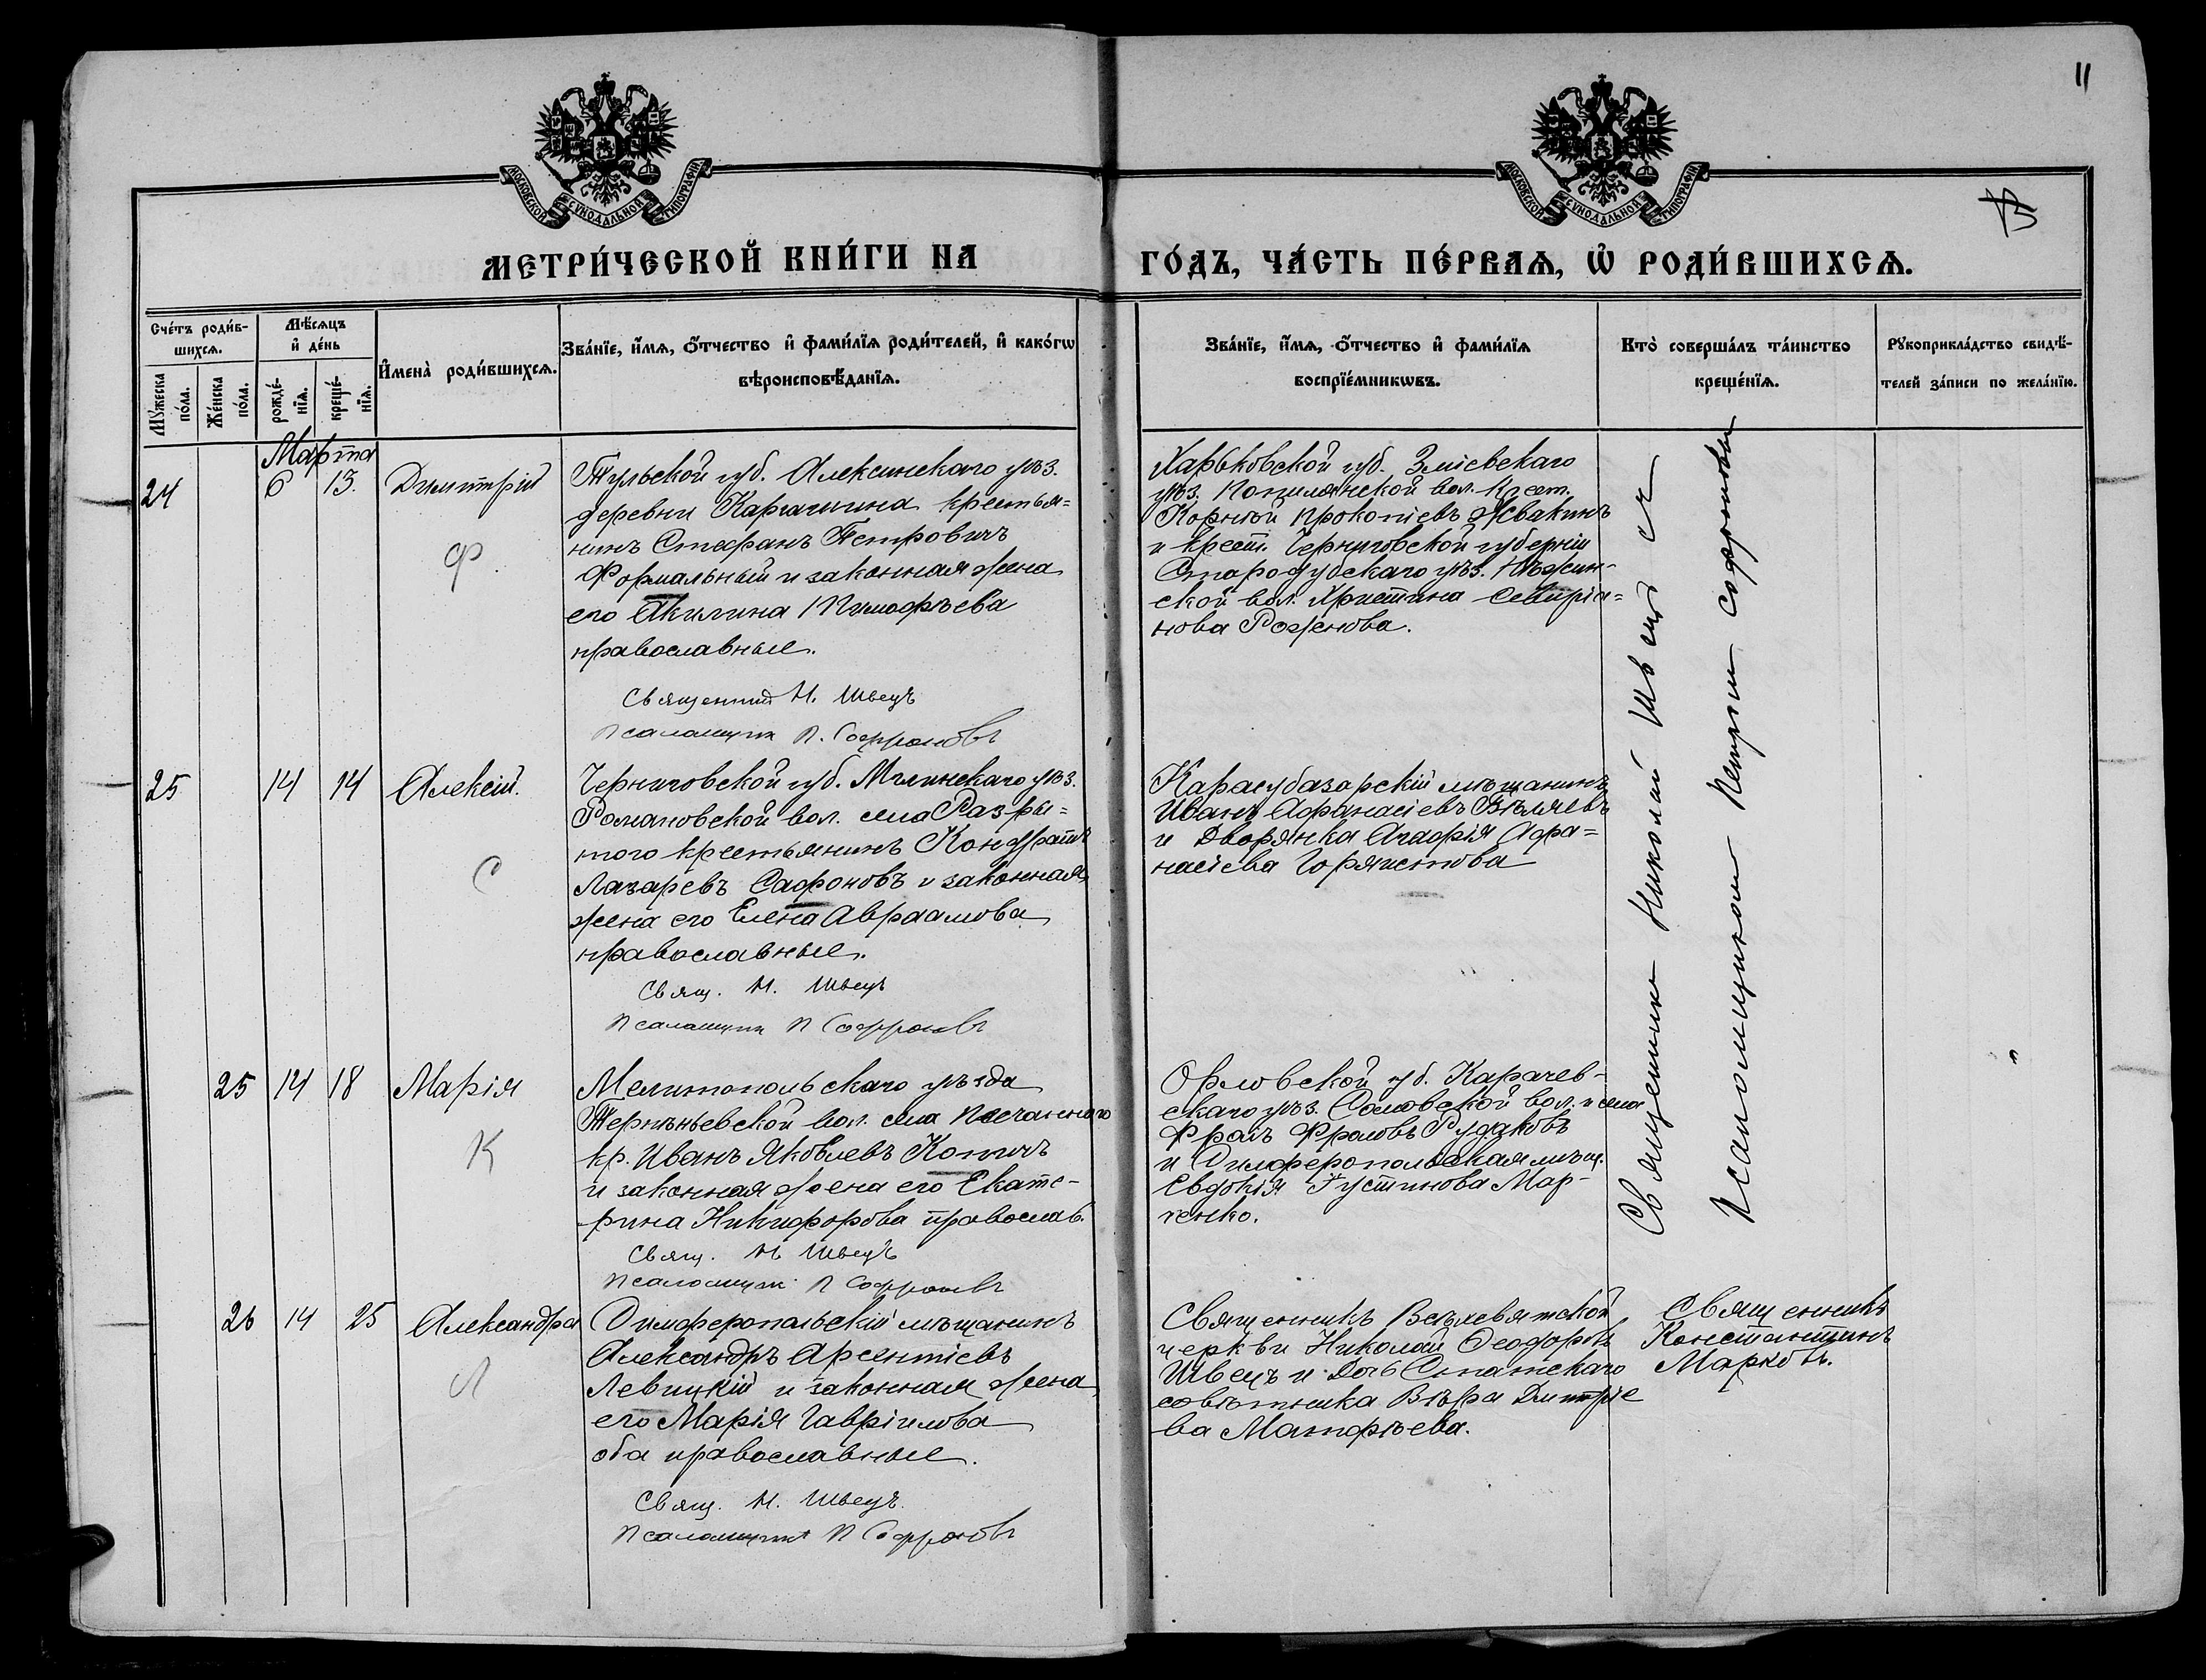 11
МОСКОВСКОЙ СѴНОДАЛЬНОЙ ТИПОГРАФІИ
МОСКОВСКОЙ СѴНОДАЛЬНОЙ ТИПОГРАФІИ
МЕТРИ́ЧЕСКОЙ КНИ́ГИ НА ГО́ДЪ, ЧА́СТЬ ПЕ́РВАѦ, Ѡ҆ РОДИ́ВШИХСѦ.
Сче́тъ роди́в-
шихсѧ.
Мꙋ́жеска
по́ла.
Же́нска
по́ла.
Мѣ́сѧцъ
и҆ де́нь
рожде́-
нїѧ.
креще́-
нїѧ.
И҆мена̀ роди́вшихсѧ.
Зва́нїе, и҆́мѧ, ѻ҆́тчество и҆ фами́лїѧ роди́телей, и҆ како́гѡ
вѣроисповѣ́данїѧ.
Зва́нїе, и҆́мѧ, ѻ҆́тчество и҆ фами́лїѧ
воспрїе́мникѡвъ.
Кто̀ соверша́лъ та́инство
креще́нїѧ.
Рꙋкоприкла́дство свидѣ́-
телей за́писи по жела́нїю.
Марта
24 6 13. Димитрій
Ф.
Тульской губ. Алексинскаго уѣз.
деревни Карачкина крестья=
нинъ Стефанъ Петровичъ
Формальный и законная жена
его Акилина Тимофѣева
православные.
Священник Н. Швецъ
Псаломщик П. Софроновъ
Харьковской губ. Зміевскаго
уѣз. вол. Крест.
Корній Прокопіевъ Жвакинъ
и крест. Черниговской губерніи
Стародубскаго уѣз.
ской вол. Христина Севирiа=
нова Роженова.
25 14 14 Алексій.
С
Черниговской губ. Мглинскаго уѣз.
Романовской вол. села Разры=
того крестьянинъ Кондратъ
Лазаревъ Сафоновъ и законная
жена его Елена Авраамова
православные.
Свящ. Н. Швецъ
Псаломщик П Софроновъ
Карасубазарскій мѣщанинъ
Иванъ Афанасіевъ Бѣляевъ
и Дворянка Агафія Афа=
насіева
Священник Николай Швецъ
Псаломщиком Петръ Софронов
25 14 18 Марія
К
Мелитопольскаго уѣзда
вол. села Песчанного
кр. Иванъ Яковлевъ Копичъ
и законная жена его Екате-
рина Никифорова православ.
Свящ. Н Швецъ
Псаломщик П Софроновъ
Орловской губ. Карачев-
скаго уѣз. вол. и села
Фролъ Фроловъ Рудаковъ
и Симферопольская мѣщ.
Евдокія Іустинова Мар-
ченко.
26 14 25 Александра
Л
Симферопольскій мѣщанинъ
Александръ Арсентіевъ
Левицкій и законная жена
его Марія Гавріилова
оба православные.
Свящ. Н. Швецъ.
Псаломщикъ П Софроновъ
Священникъ Всѣхсвятской
церкви Николай Ѳеодоровъ
Швецъ и дочь Статскаго
совѣтника Вѣра Дмитріе
ва Матфѣева.
Священникъ
Константинъ
Марковъ.